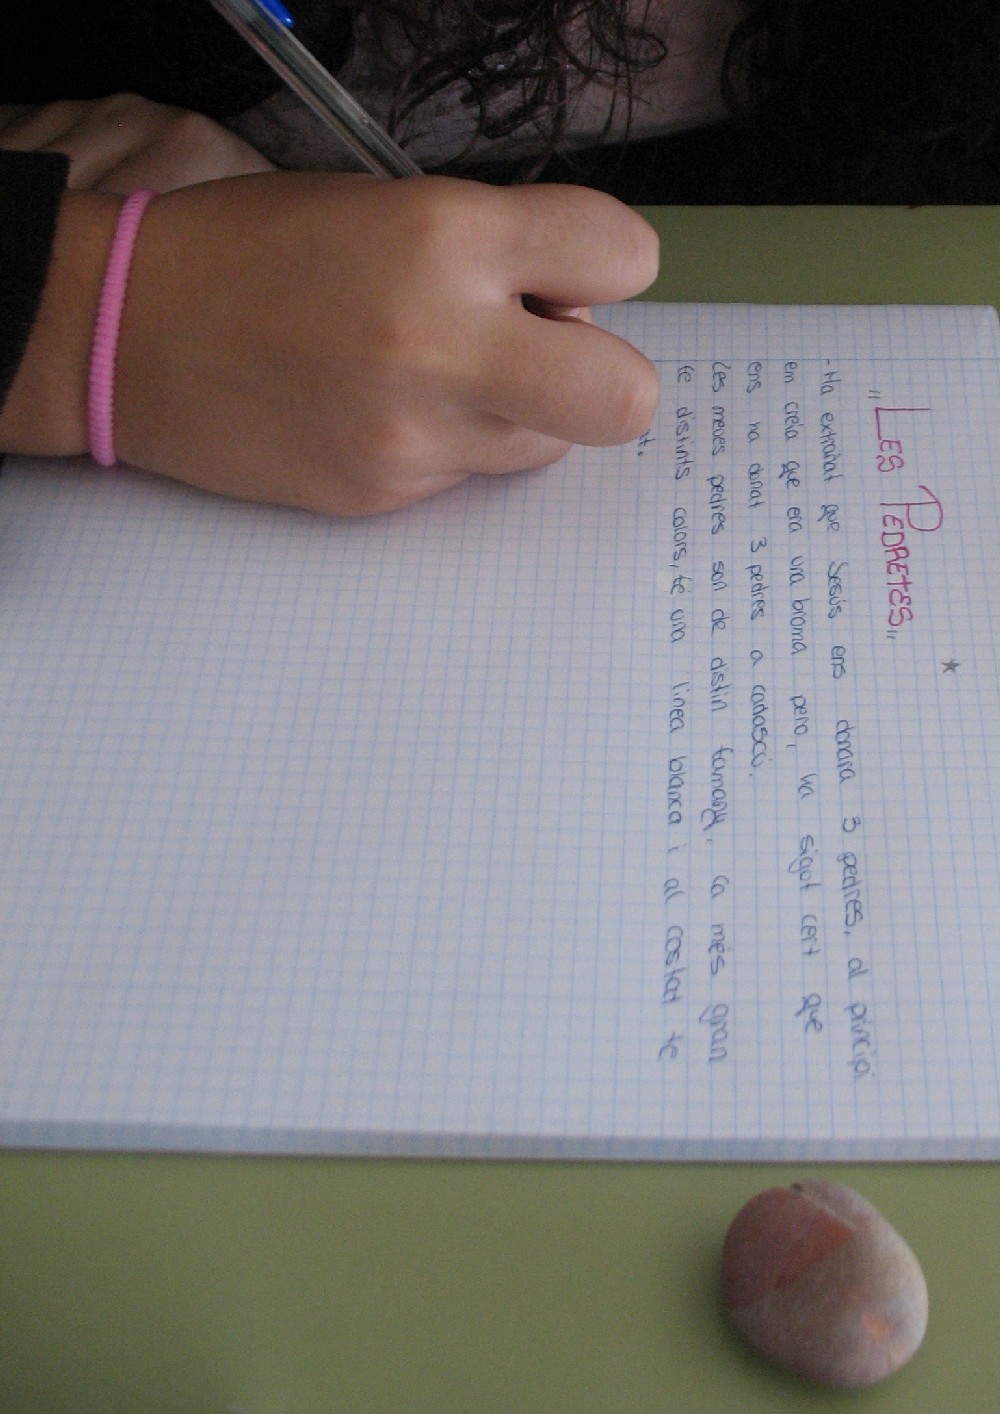 "LES PEDRETES"
- Ha extrañat que Jesús ens donara 3 pedres, al principi
em creia que era una broma pero, ha sigut cert que
ens ha donat 3 pedres a cadascú.
Les meves pedres son de distin tamany, ca més gran
te distints colors, té una linea blanca i al costat te